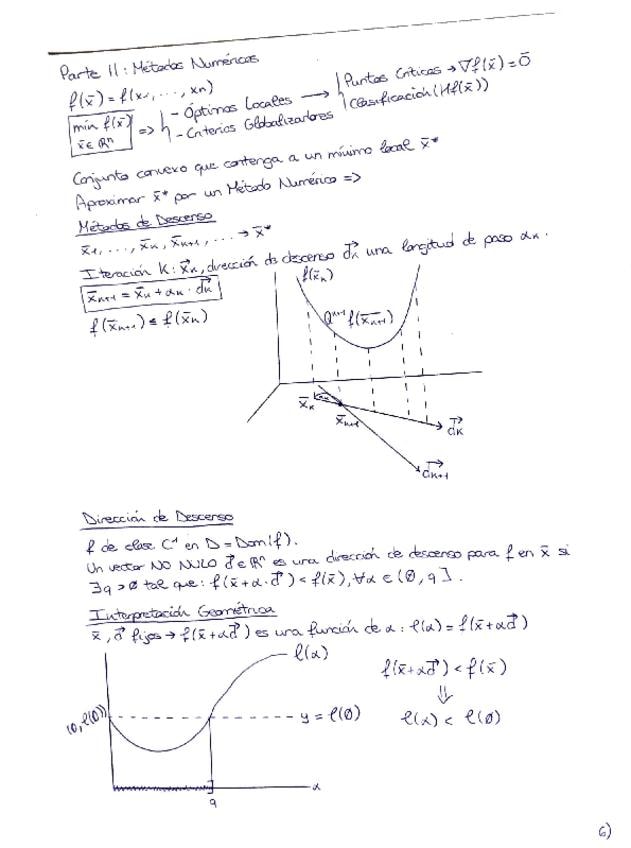 Parte II: Métodos Numéricos
f(x̄) = f(x₁, ..., xn)
min f(x̄) x̄ ∈ ℝⁿ => { - Óptimos Locales → { Puntos Críticos → ∇f(x̄) = Ō
- Criterios Globalizadores Clasificación (Hf(x̄))
Conjunto convexo que contenga a un mínimo local x̄*
Aproximar x̄* por un Método Numérico =>
Métodos de Descenso
x̄₁, ..., x̄k, x̄k+1, ... → x̄*
Iteración K: x̄k, dirección de descenso d⃗k una longitud de paso αk.
x̄k+1 = x̄k + αk · d⃗k
f(x̄k+1) ≤ f(x̄k)
f(x̄k)
f(x̄k+1)
x̄k
αk
x̄k+1
d⃗k
d⃗k+1
Dirección de Descenso
f de clase C¹ en D = Dom(f).
Un vector NO NULO d⃗ ∈ ℝⁿ es una dirección de descenso para f en x̄ si
∃q > 0 tal que: f(x̄ + α · d⃗) < f(x̄), ∀α ∈ (0, q].
Interpretación Geométrica
x̄, d⃗ fijos → f(x̄ + αd⃗) es una función de α: ℓ(α) = f(x̄ + αd⃗)
ℓ(α)
f(x̄ + αd⃗) < f(x̄)
⇓
(0, ℓ(0))
y = ℓ(0)
ℓ(α) < ℓ(0)
α
q
6)